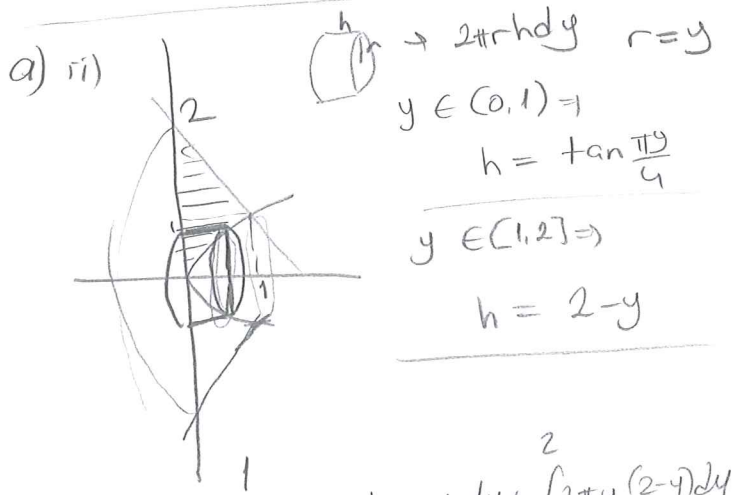 h
a) ii) r → 2πrhdy r=y
2
y ∈ (0,1) ⇒
h = tan πy/4
y ∈ [1,2] ⇒
1
h = 2-y
2
1
∫2πy(2-y)dy